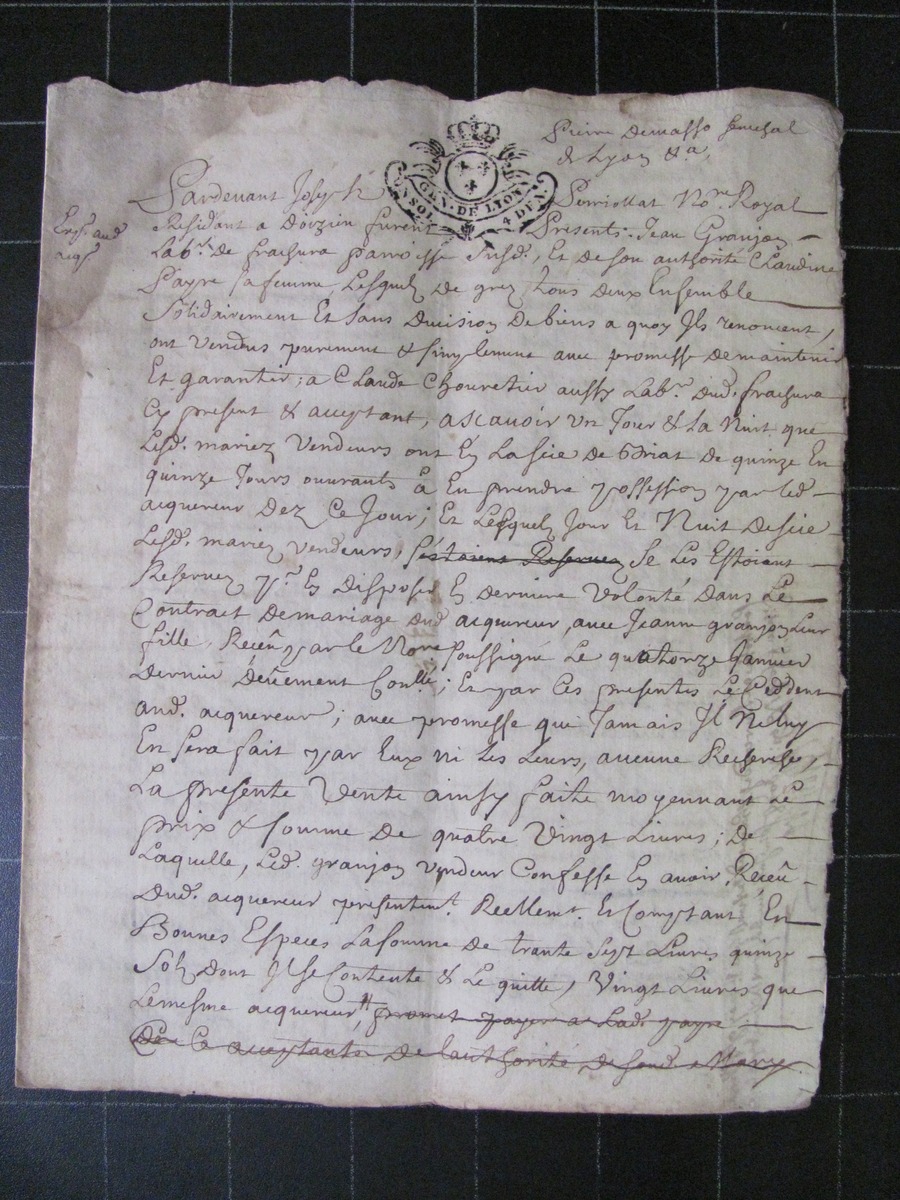 Pierre Demasso senechal
de Lyon &a,
GEN · DE LYON
SOL 4 DEN
Pardevant Joseph Perriollat Nore. Royal
Expe. aud.
acqr.
Residant a Doizieu furent Presents: Jean Granjon
Labr. De frachura parroisse Susd., Et de son authorité Claudine
Payre sa femme, Lesquels De gré, tous deux Ensemble
Solidairement Et Sans Division De biens a quoy Ils renoncent,
ont Vendus purement & simplement avec promesse de maintenir
Et garantir; a Claude Chouvetier aussy Labr. Dud. frachura
Cy present & acceptant, ascavoir un Jour & la Nuit que
Lesd. mariez Vendeurs ont En La scie De Briat De quinze En
quinze Jours ouvrants à En prendre possession par led.
acquereur Dez Ce Jour; Et Lesquels Jour Et Nuit De scie
Lesd. mariez vendeurs, s'étaient Reservez Se Les Estoient
Reservez pr. En Disposer En Derniere Volonté Dans Le
Contract De mariage Dud. acquereur, avec Jeanne granjon Leur
fille, Receû par le Nore soussigné Le quatorze Janvier
Dernier Deûement Conllé; Et par Ces presentes Le Ceddent
aud. acquereur; avec promesse que Jamais Il Ne luy
En sera fait par Eux ni Les Leurs, aucune Recherche,
La presente Vente ainsy faite moyennant Le
prix & somme De quatre Vingt Livres; De
Laquelle, Led. granjon vendeur Confesse En avoir Receû
Dud. acquereur presentemt. Reellemt. Et Comptant En
Bonnes Especes La somme De trante Sept Livres quinze
Solz Dont Il se Contente & Le quitte, Vingt Livres que
Le mesme acquereur, promet payer a Lad. payre
De Ce acceptante De l'authorité De sond. Mary